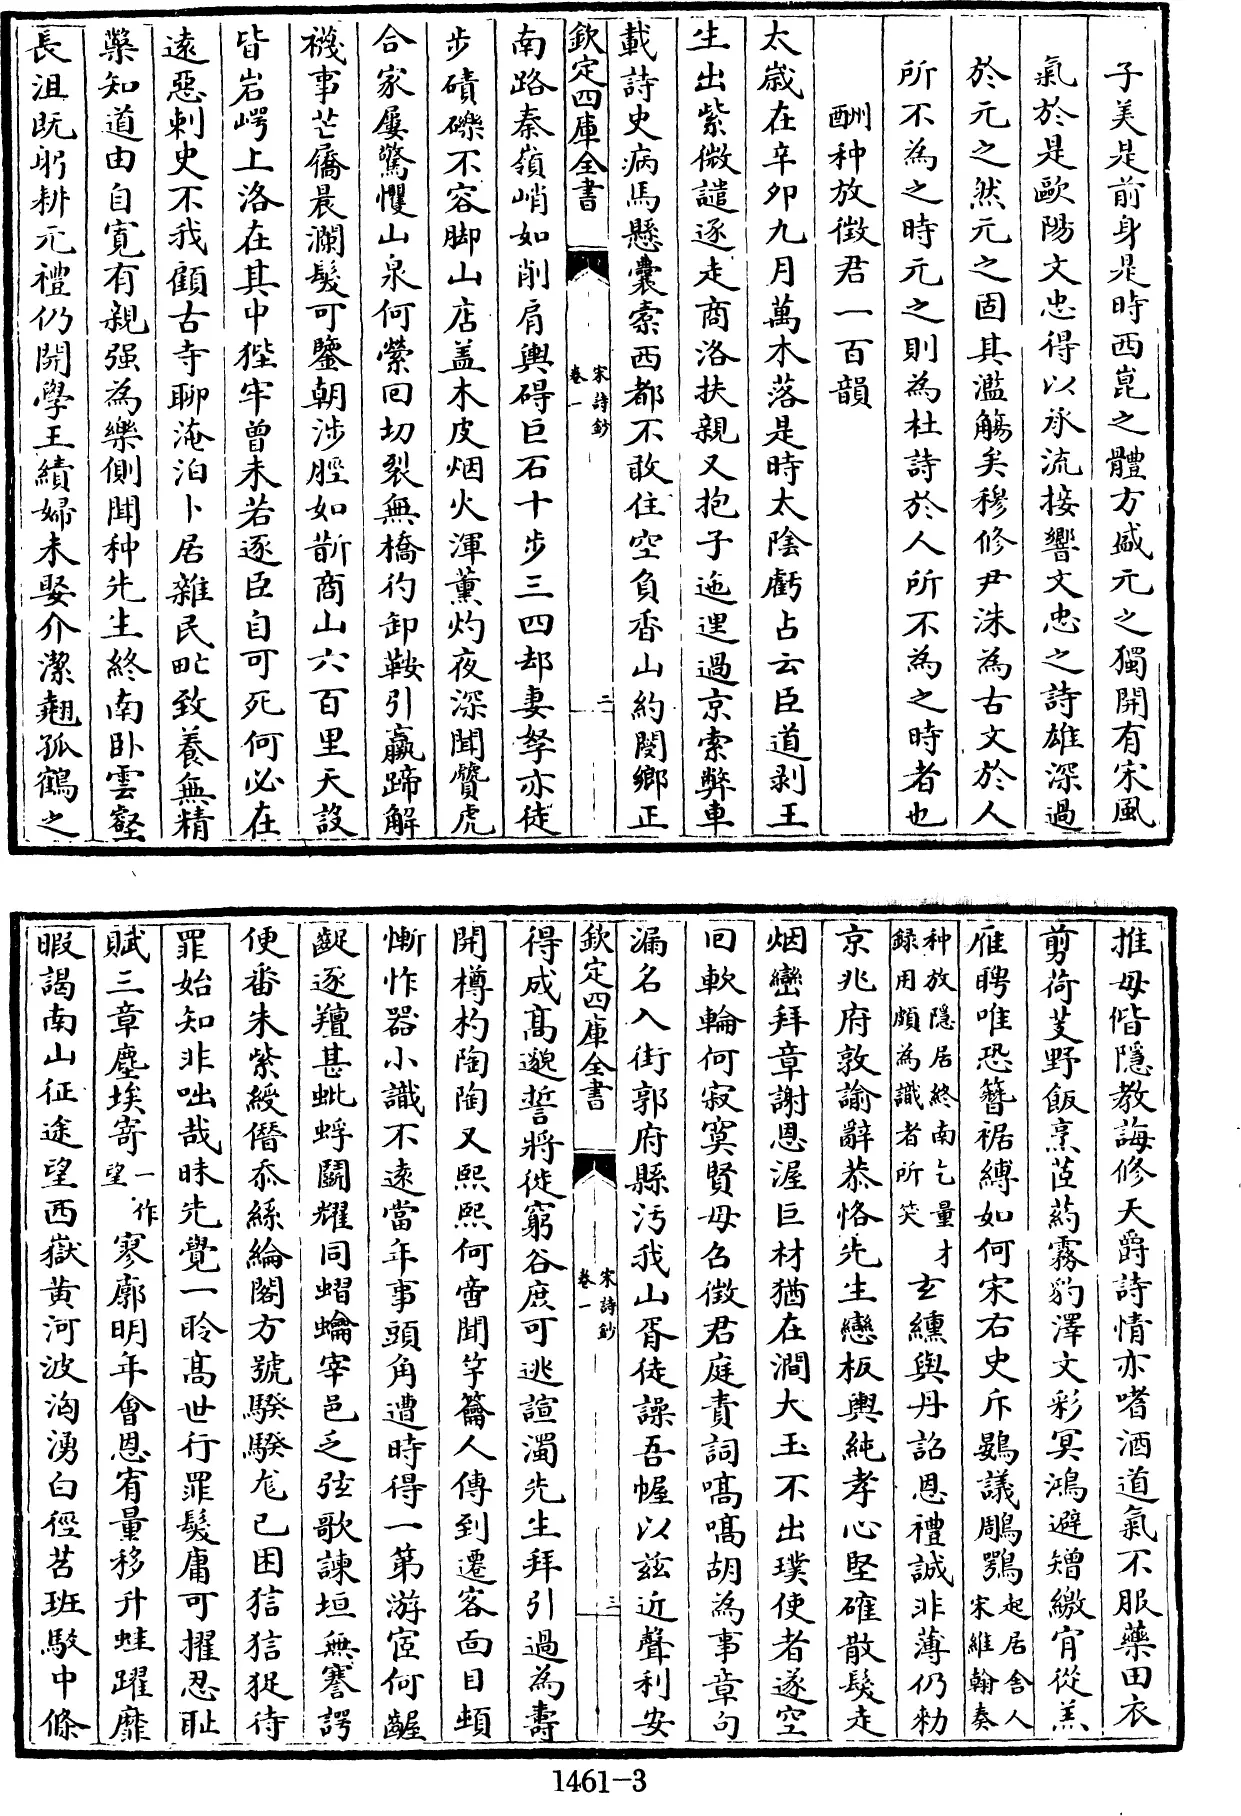 子美是前身是時西崑之體方盛元之獨開有宋風
氣於是歐陽文忠得以承流接響文忠之詩雄深過
於元之然元之固其濫觴矣穆修尹洙為古文於人
所不為之時元之則為杜詩於人所不為之時者也
酬种放徵君一百韻
太歲在辛卯九月萬木落是時太陰虧占云臣道剥王
生出紫微譴逐走商洛扶親又抱子迤邐過京索弊車
載詩史病馬懸囊索西都不敢住空負香山約閿鄉正
欽定四庫全書
宋詩鈔
卷一
二
南路秦嶺峭如削肩輿碍巨石十步三四却妻孥亦徒
步磧礫不容脚山店盖木皮烟火渾薰灼夜深聞贙虎
合家屢驚懼山泉何縈回切裂無橋彴卸鞍引羸蹄解
襪事芒屩晨瀾髮可鑒朝涉脛如斮商山六百里天設
皆岩崿上洛在其中狴牢曾未若逐臣自可死何必在
遠惡刺史不我顧古寺聊淹泊卜居雜民甿致養無精
藥知道由自寛有親强為樂側聞种先生終南卧雲壑
長沮既躬耕亢禮仍開學王績婦未娶介潔翹孤鶴之
推母偕隱教誨修天爵詩情亦嗜酒道氣不服藥田衣
剪荷芰野飯烹茝葯霧豹澤文彩冥鴻避矰繳宵從羔
雁聘唯恐簪裾縛如何宋右史斥鷃議鵰鶚起居舍人宋維翰奏
种放隱居終南乞量才録用頗為識者所笑玄纁與丹詔恩禮誠非薄仍勑
京兆府敦諭辭恭恪先生戀板輿純孝心堅確散髮走
烟巒拜章謝恩渥巨材猶在澗大玉不出璞使者遂空
回軟輪何寂寞賢母召徵君庭責詞嗃嗃胡為事章句
漏名入街郭府縣汚我山胥徒譟吾幄以兹近聲利安
欽定四庫全書
宋詩鈔
卷一
三
得成高邈誓將徙窮谷庶可逃諠濁先生拜引過為壽
開樽杓陶陶又熙熙何啻聞竽籥人傳到遷客面目頓
慚怍器小識不遠當年事頭角遭時得一第游宦何齷
齪逐羶甚蚍蜉鬭耀同熠爚宰邑乏弦歌諫垣無謇諤
便番朱紫綬僭忝絲綸閣方號騤騤尨已困狺狺㹱待
罪始知非咄哉昧先覺一聆高世行罪髮庸可擢忍恥
賦三章塵埃寄一作望寥廓明年會恩宥量移升蛙躍靡
暇謁南山征途望西嶽黄河波洶湧白徑苕班駮中條
1461-3